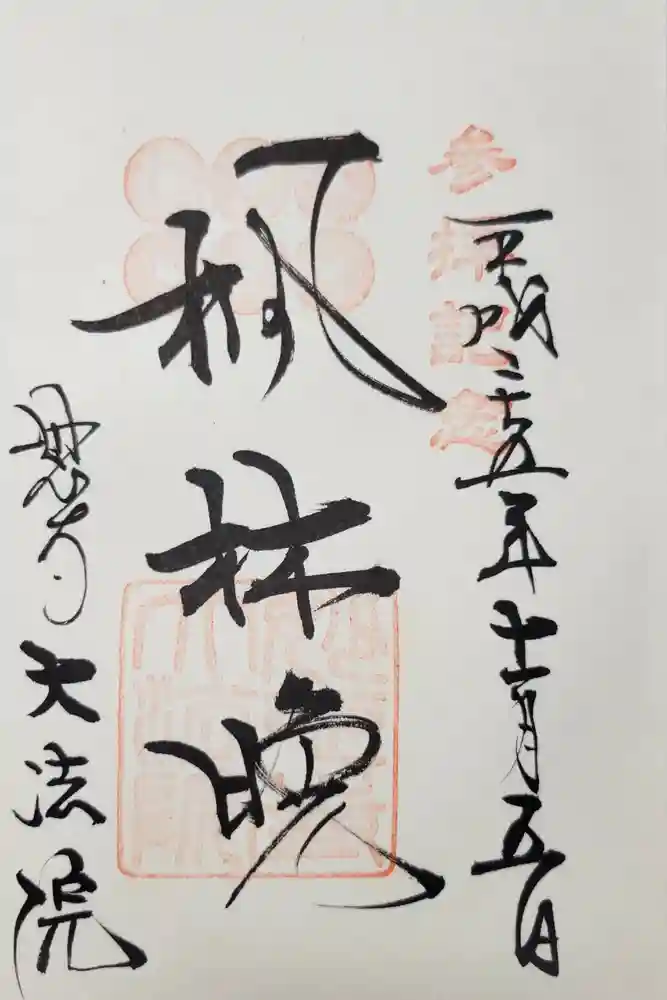 参拝記念
平成二十五年十一月五日
楓林晩
大法院